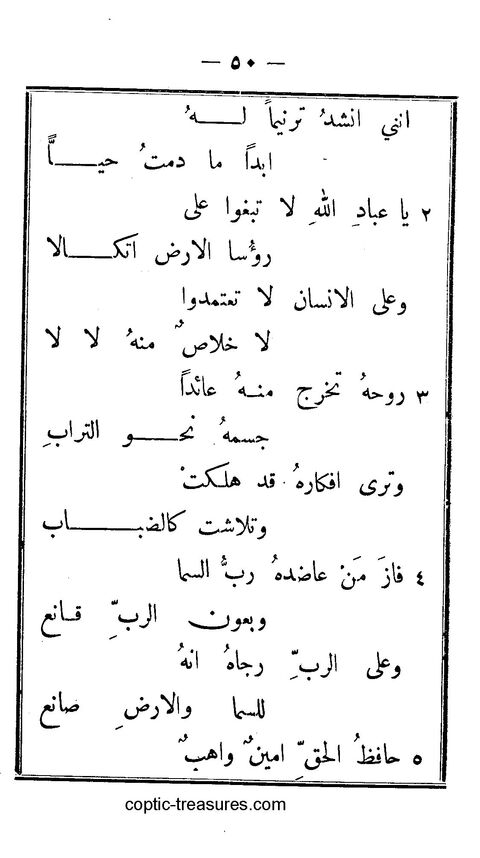 — ٥٠ —
انني انشدُ ترنيماً لـــهُ
ابداً ما دمتُ حيـــاًّ
٢ يا عبادِ اللهِ لا تبغوا على
رؤُسا الارض اتكـــالا
وعلى الانسان لا تعتمدوا
لا خلاصٌ منهُ لا لا
٣ روحهُ تخرج منــهُ عائداً
جسمهُ نحـــو الترابِ
وترى افكارهُ قد هلكتْ
وتلاشت كالضبـــاب
٤ فازَ مَنْ عاضدهُ ربُّ السما
وبعون الربِّ قــانع
وعلى الربِّ رجاهُ انهُ
للسما والارضِ صانع
٥ حافظُ الحقِّ امينٌ واهبٌ
coptic-treasures.com